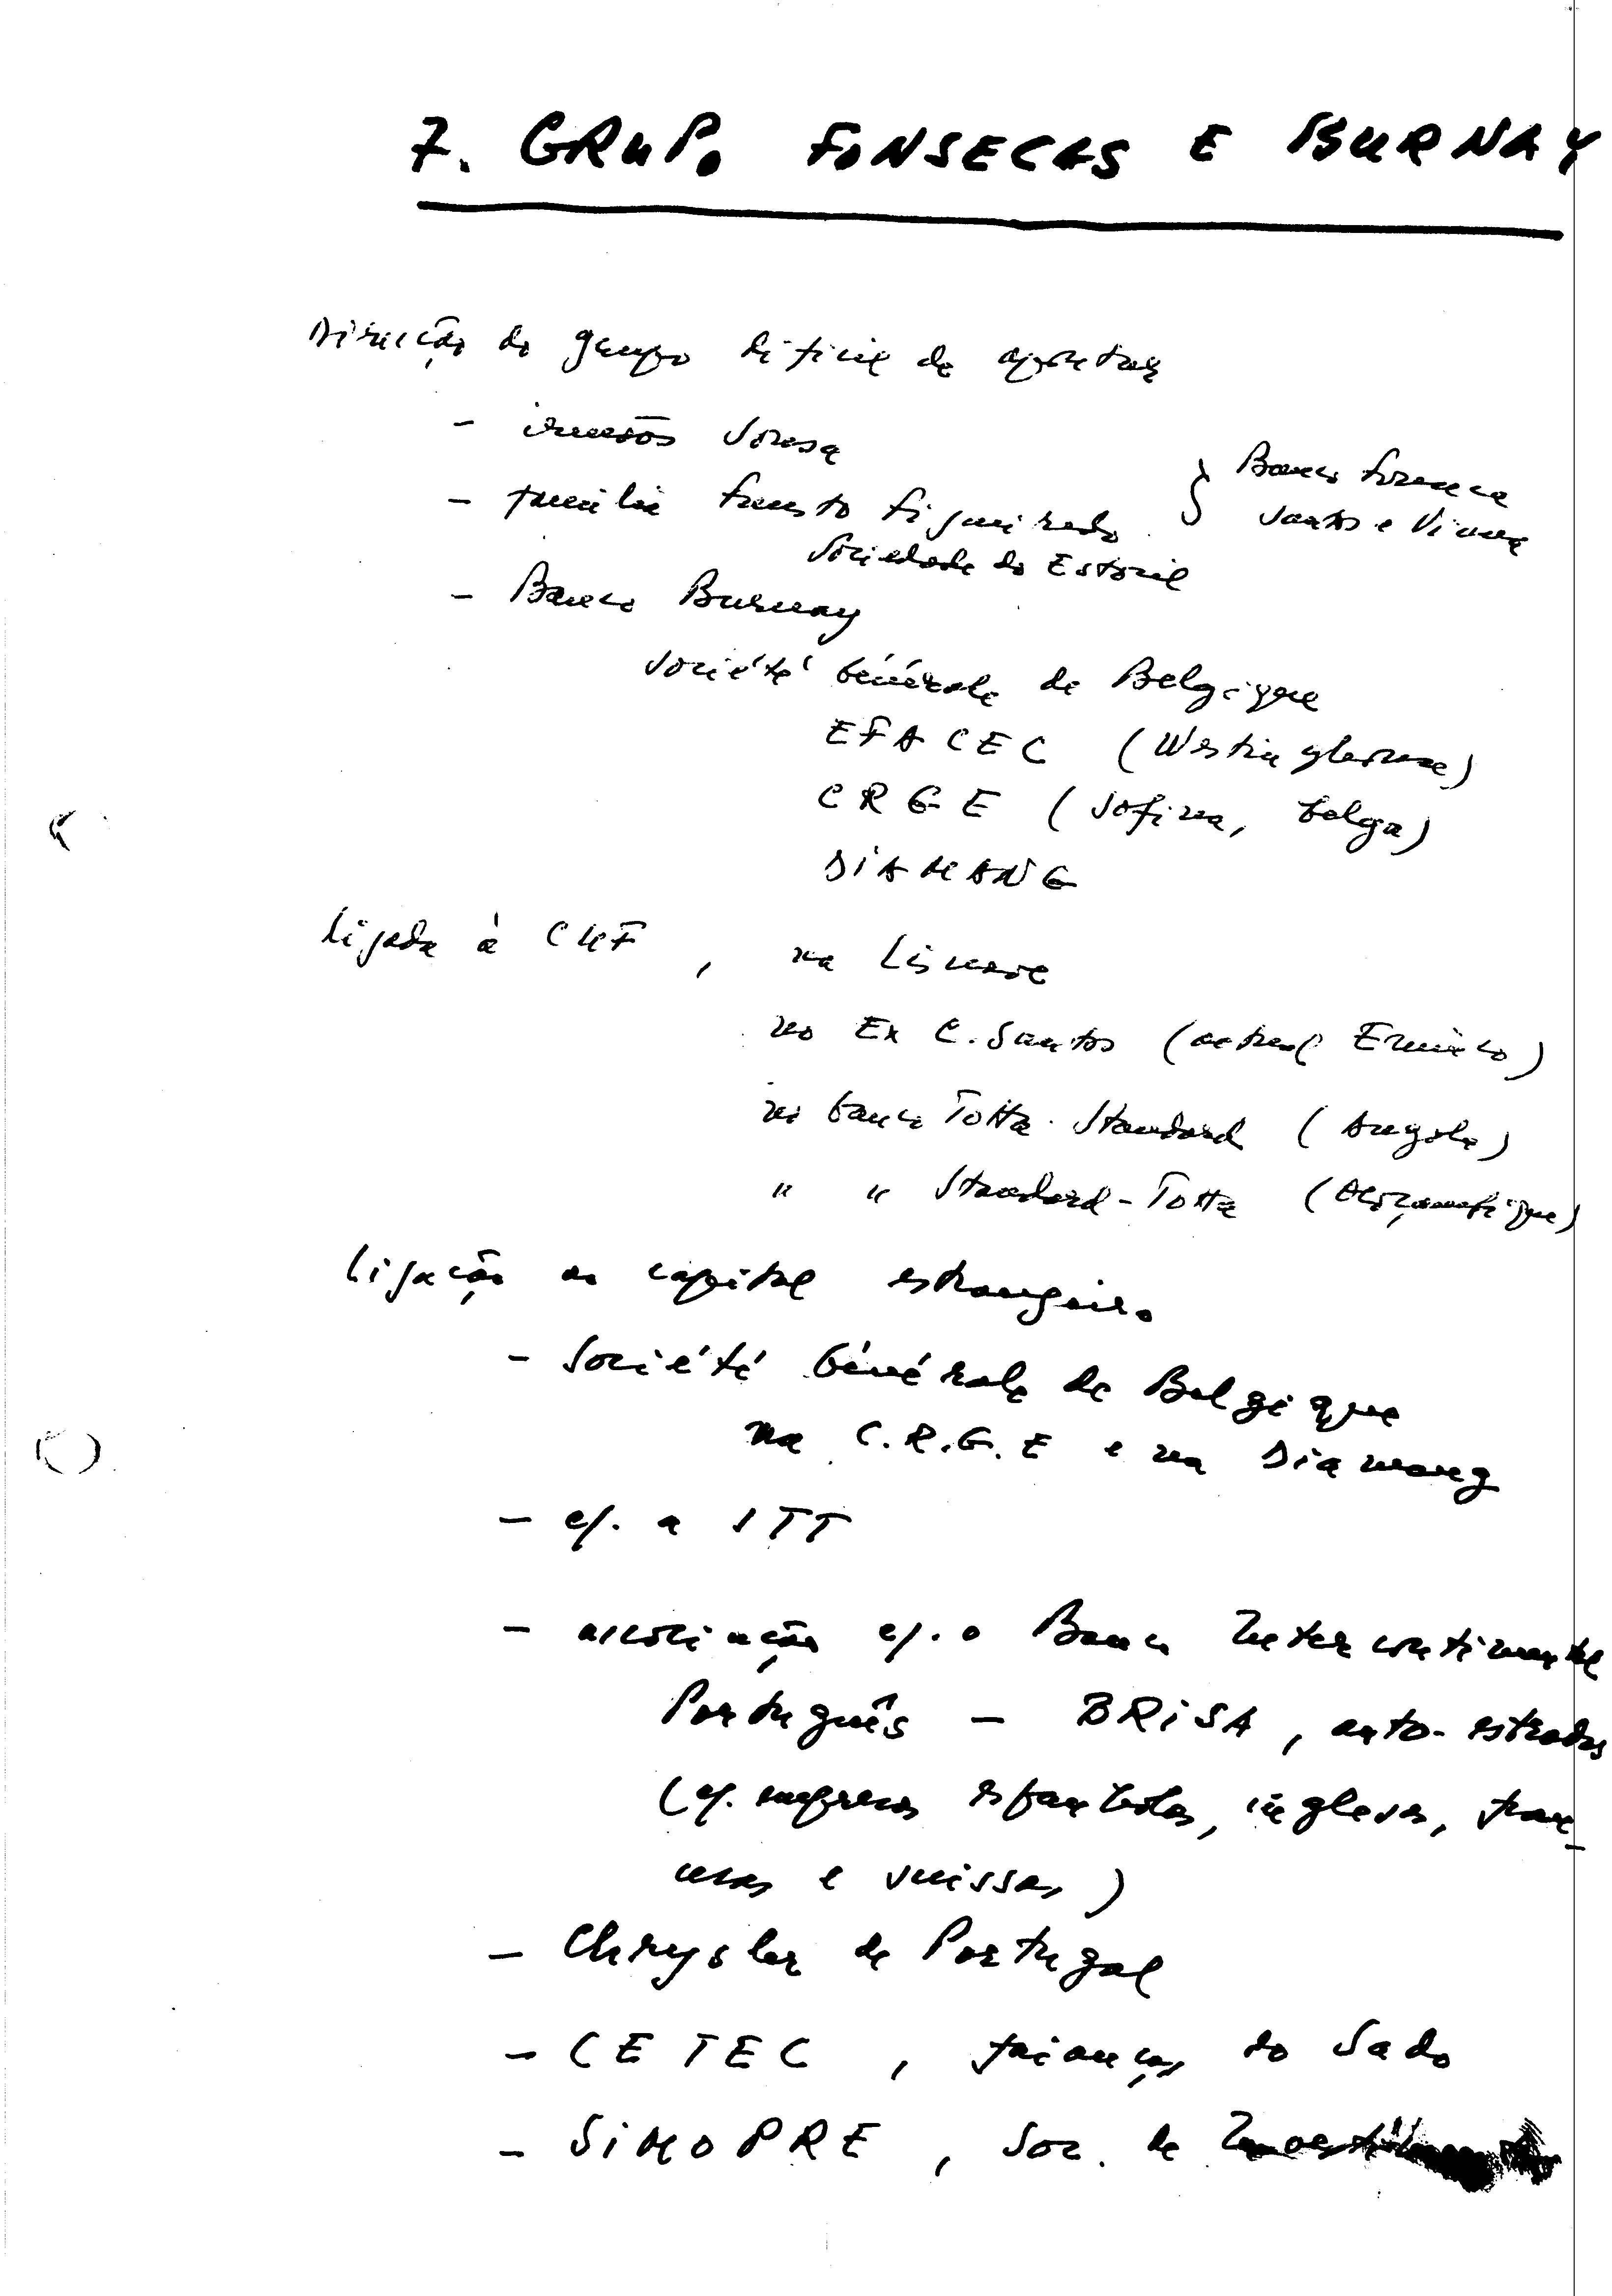 7. GRUPO FONSECAS E BURNAY
Direcção do grupo difícil de apontar
- irmãos Sousa
- família Fausto Figueiredo } Banco Fonseca
Santos e Viana
Sociedade do Estoril
- Banco Burnay
Société Générale de Belgique
EFACEC (Westinghouse)
CRGE (Sofina, belga)
DIAMANG
Ligada à CUF, na Lisnave
no Ex C. Santos (actual Emi)
no banco Totta-Standard (Angola)
" " Standard-Totta (Moçambique)
Ligação ao capital estrangeiro
- Société Générale de Belgique
na C.R.G.E e na Diamang
- c/. a ITT
- associação c/. o Banco Intercontinental
Português - BRISA, auto-estradas
(c/. empresas espanholas, inglesas, fran-
cesas e suissas)
- Chrysler de Portugal
- CETEC, faianças do Sado
- SIMOPRE, Soc. de